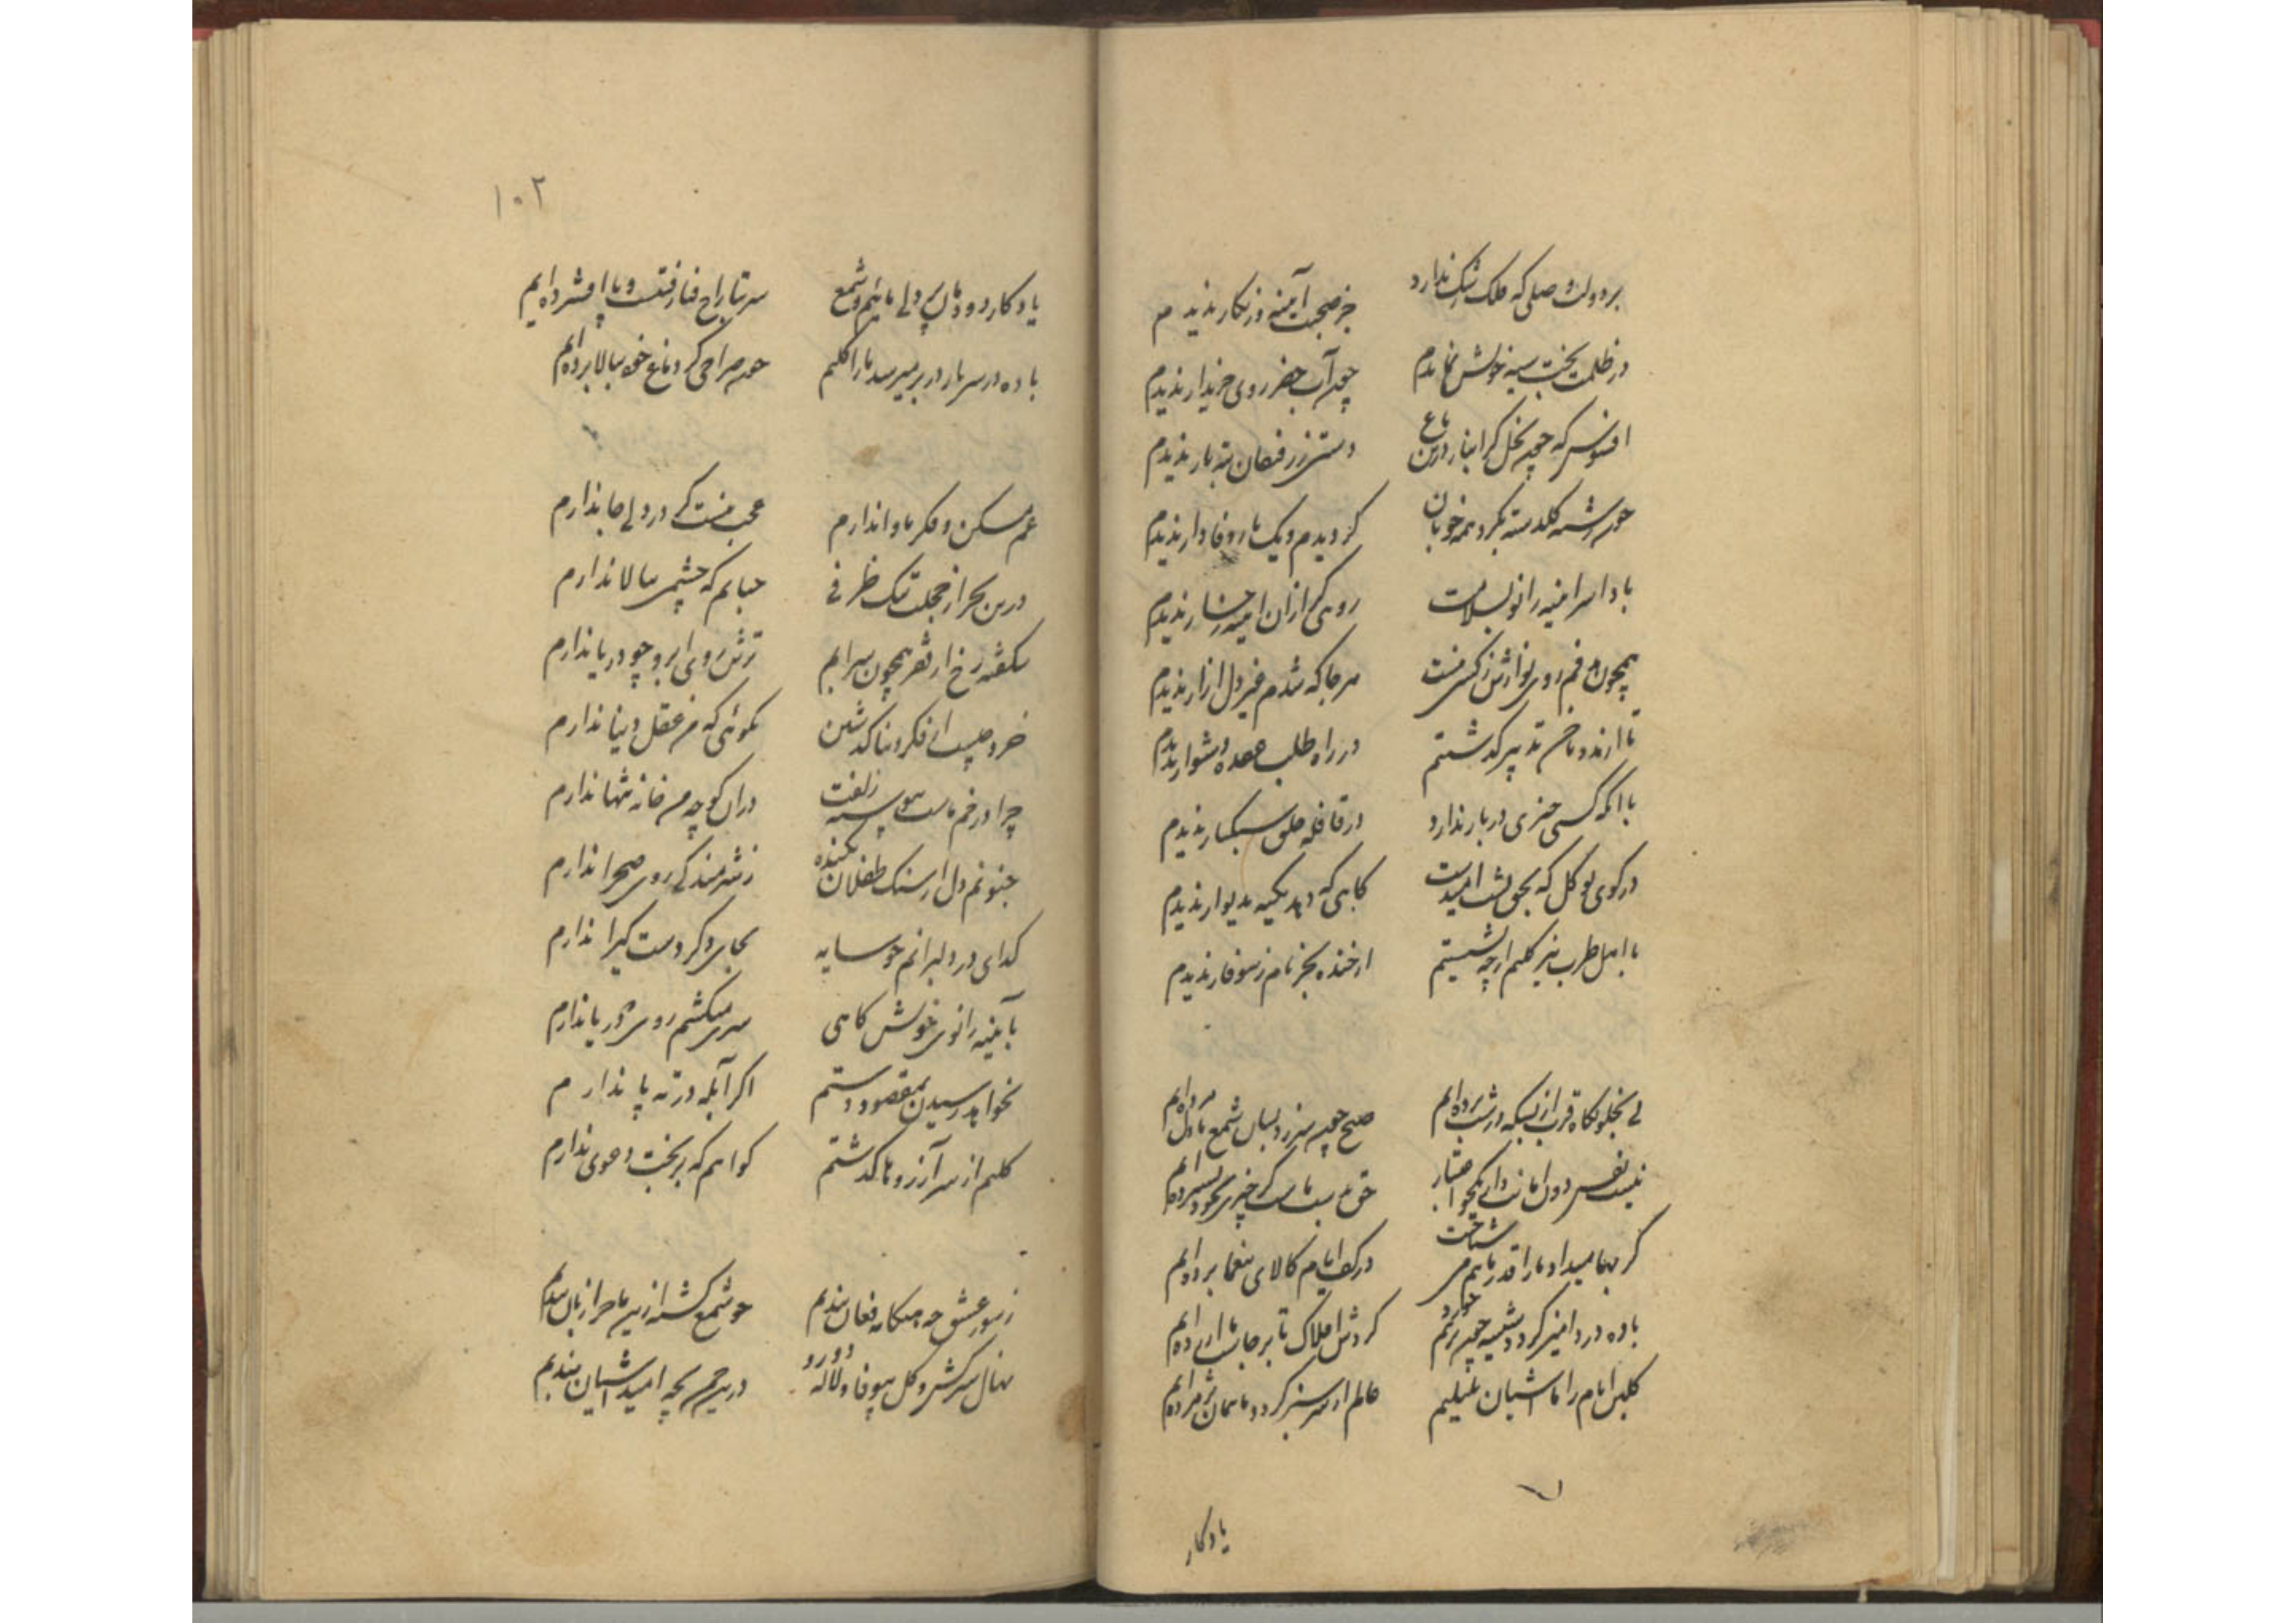 بر دولت وصلی که فلک رشک ندارد جز صحبت آینه و زنکار ندیدم
در ظلمت بخت سیه خویش نماندم چون آب خضر روی خریدار ندیدم
افسوس که چون نخل کرانبار درین باغ دستی ز رفیقان ته بار ندیدم
چون رشته کلدسته بکرد همه خوبان کردیدم و یک یار وفادار ندیدم
باد اسر آینه زانو بسلامت روی کر از آن آینه رخسار ندیدم
همچون روی نوازش ز کسی نیست هر جا که شدم غیر دل آزار ندیدم
تا از مدد ناخن تدبیر کذشتم در راه طلب عقده دشوار ندیدم
با آنکه کسی چیزی در بار ندارد در قافله خلق سبکبار ندیدم
در کوی تو کل که بحق پشت امیدست کاهی که دهد تکیه بدیوار ندیدم
با اهل طرب نیز کلیم ارچه نشستیم از خنده بجز نام ز سوفار ندیدم
بی بخلوتکاه قرب از بسکه در شب برده ایم صبح چون سر زد بسان شمع مادل مرده ایم
نیست نفس دون امانت دار
کر بها میداد ما را قدر ما هم می شناخت در کف ایام کالای بیغما برده ایم
باده درد آمیز کردد شیشه چون برهم خورد کردش افلاک تا برجاست ما آزرده ایم
کلبن ایام را ما آشیان بلبلیم عالم ار سرسبز کردد ما همان پژمرده ایم
یادکار
۱۰۲
یادکار دودمان بی دلی مائیم و شمع سر بتاراج فنا رفتست و پا افشرده ایم
باده در سر بار در بر میرسد ما را کلیم چون صراحی کر دماغ خود ببالا برده ایم
غم مسکن و فکر ماوا ندارم عجب نیست کر در دلی جا ندارم
درین بحر از خجلت تنک ظرفی حبابم که چشمی ببالا ندارم
شکفته رخ از فقر همچون سرابم ترش روی ابرو چو دریا ندارم
خرد چیست از فکر دنیا کذشتن نکوئی که من عقل دنیا ندارم
چرا در خم ماست پیوسته زلفت در آن کوچه من خانه تنها ندارم
جنونم دل از سنک طفلان نکنده ز شرمندکی روی صحرا ندارم
کدای در دلبرانم چو سایه بجای دکر دست کیرا ندارم
بآینه زانوی خویش کاهی سری میکشم روی دریا ندارم
نخواهد رسیدن بمقصود دستم اکر آبله در ته پا ندارم
کلیم از سر آرزوها کذشتم کواهم که بر بخت دعوی ندارم
ز سور عشق چه هنکامه فغان بندیم چو شمع کشته ازین ماجرا زبان بندیم
نهال سرکش و کل بیوفا و لاله دورو درین چمن بچه امید آشیان بندیم